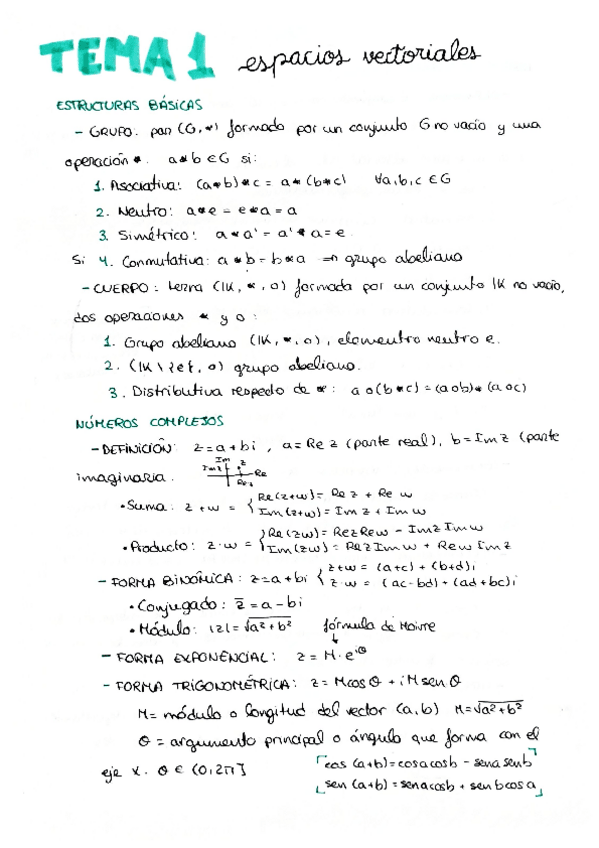 TEMA 1 espacios vectoriales
ESTRUCTURAS BÁSICAS
- GRUPO: par (G,*) formado por un conjunto G no vacío y una
operación *. a*b ∈ G si:
1. Asociativa: (a*b)*c = a*(b*c) ∀a,b,c ∈ G
2. Neutro: a*e = e*a = a
3. Simétrico: a*a' = a'*a = e
Si 4. Conmutativa: a*b = b*a ⇒ grupo abeliano
- CUERPO: terna (IK, *, o) formada por un conjunto IK no vacío,
dos operaciones * y o:
1. Grupo abeliano (IK, *, o), elemento neutro e.
2. (IK \ {e}, o) grupo abeliano.
3. Distributiva respecto de *: a o (b*c) = (a o b) * (a o c)
NÚMEROS COMPLEJOS
- DEFINICIÓN: z = a + bi, a = Re z (parte real), b = Im z (parte
imaginaria. Im Im z z Re Re z
• Suma: z + w = { Re(z+w) = Re z + Re w
Im(z+w) = Im z + Im w
• Producto: z · w = { Re(zw) = Rez Rew - Imz Imw
Im(zw) = Rez Imw + Rew Imz
- FORMA BINÓMICA: z = a + bi { z+w = (a+c) + (b+d)i
z·w = (ac-bd) + (ad+bc)i
• Conjugado: z̄ = a - bi
• Módulo: |z| = √a²+b² fórmula de Moivre
↓
- FORMA EXPONENCIAL: z = M·e^iθ
- FORMA TRIGONOMÉTRICA: z = M cos θ + i M sen θ
M = módulo o longitud del vector (a,b) M = √a²+b²
θ = argumento principal o ángulo que forma con el
eje x. θ ∈ (0,2π]
cos (a+b) = cosa cosb - sena senb
sen (a+b) = sena cosb + senb cosa